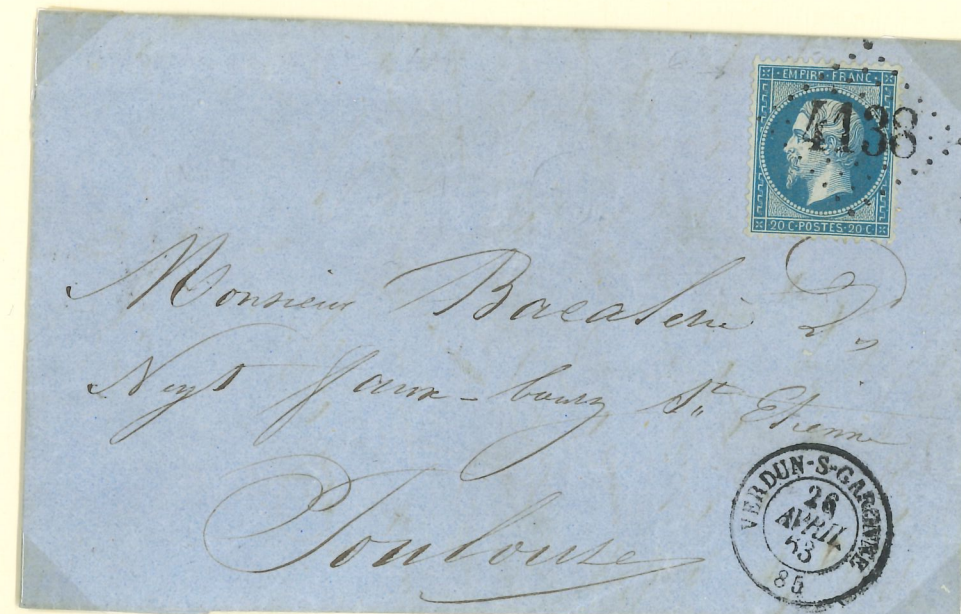 EMPIRE FRANC
4138
20 C POSTES 20 C
Monsieur
Négt faux-bourg St Etienne
Toulouse
VERDUN-S-GARONNE
26
AVRIL
63
85